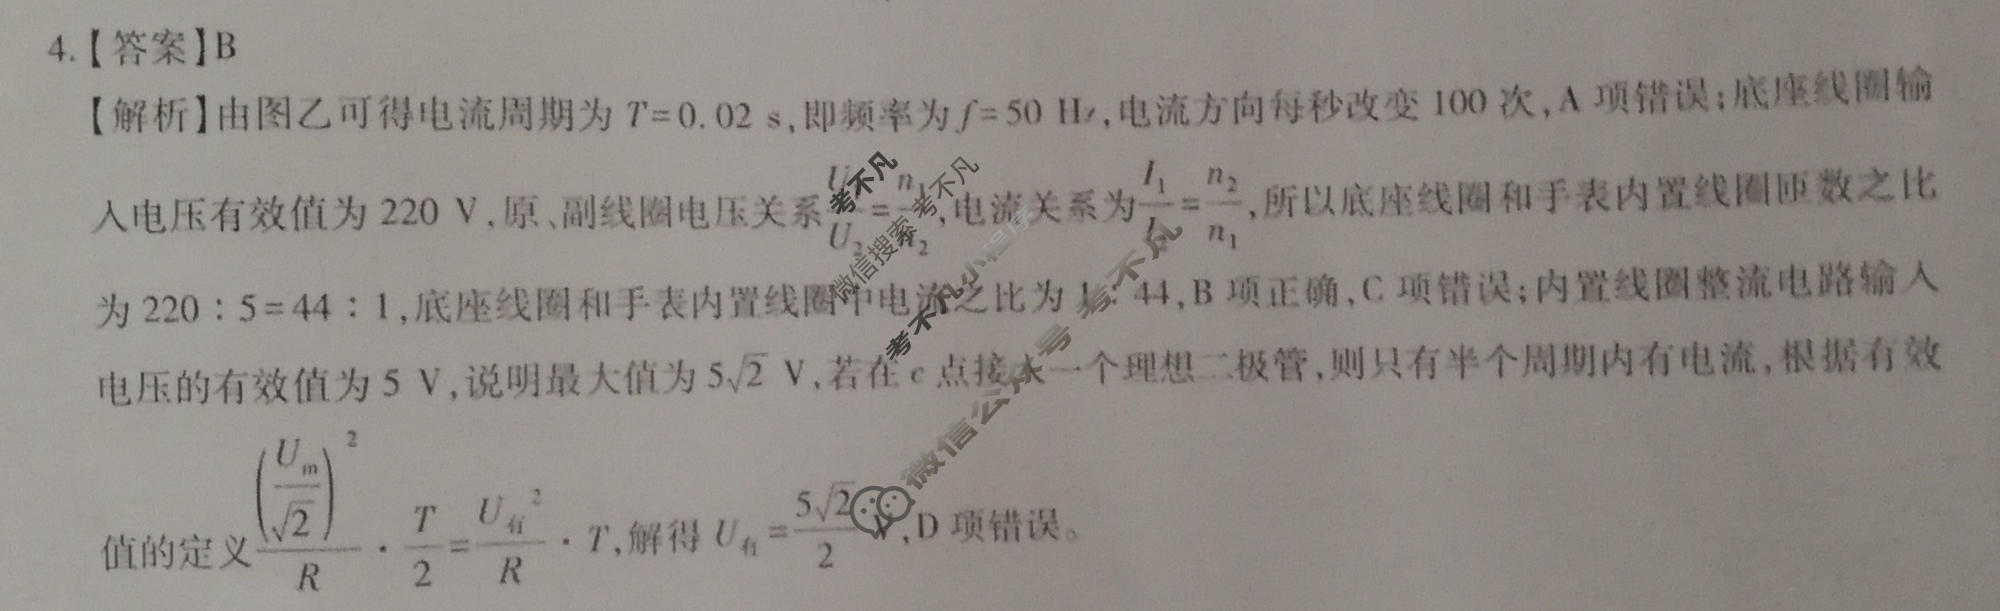 4.【答案】B
【解析】由图乙可得电流周期为 T=0.02 s,即频率为 f=50 Hz,电流方向每秒改变 100 次,A 项错误;底座线圈输
入电压有效值为 220 V,原、副线圈电压关系 U₁/U₂=n₁/n₂,电流关系为 I₁/I₂=n₂/n₁,所以底座线圈和手表内置线圈匝数之比
为 220∶5=44∶1,底座线圈和手表内置线圈中电流之比为 1∶44,B 项正确,C 项错误;内置线圈整流电路输入
电压的有效值为 5 V,说明最大值为 5√2 V,若在 c 点接入一个理想二极管,则只有半个周期内有电流,根据有效
值的定义 (Um/√2)²/R · T/2 = U有²/R · T,解得 U有=5√2/2 V,D 项错误。
考不凡
微信搜索 考不凡
考不凡小程序
微信公众号 考不凡